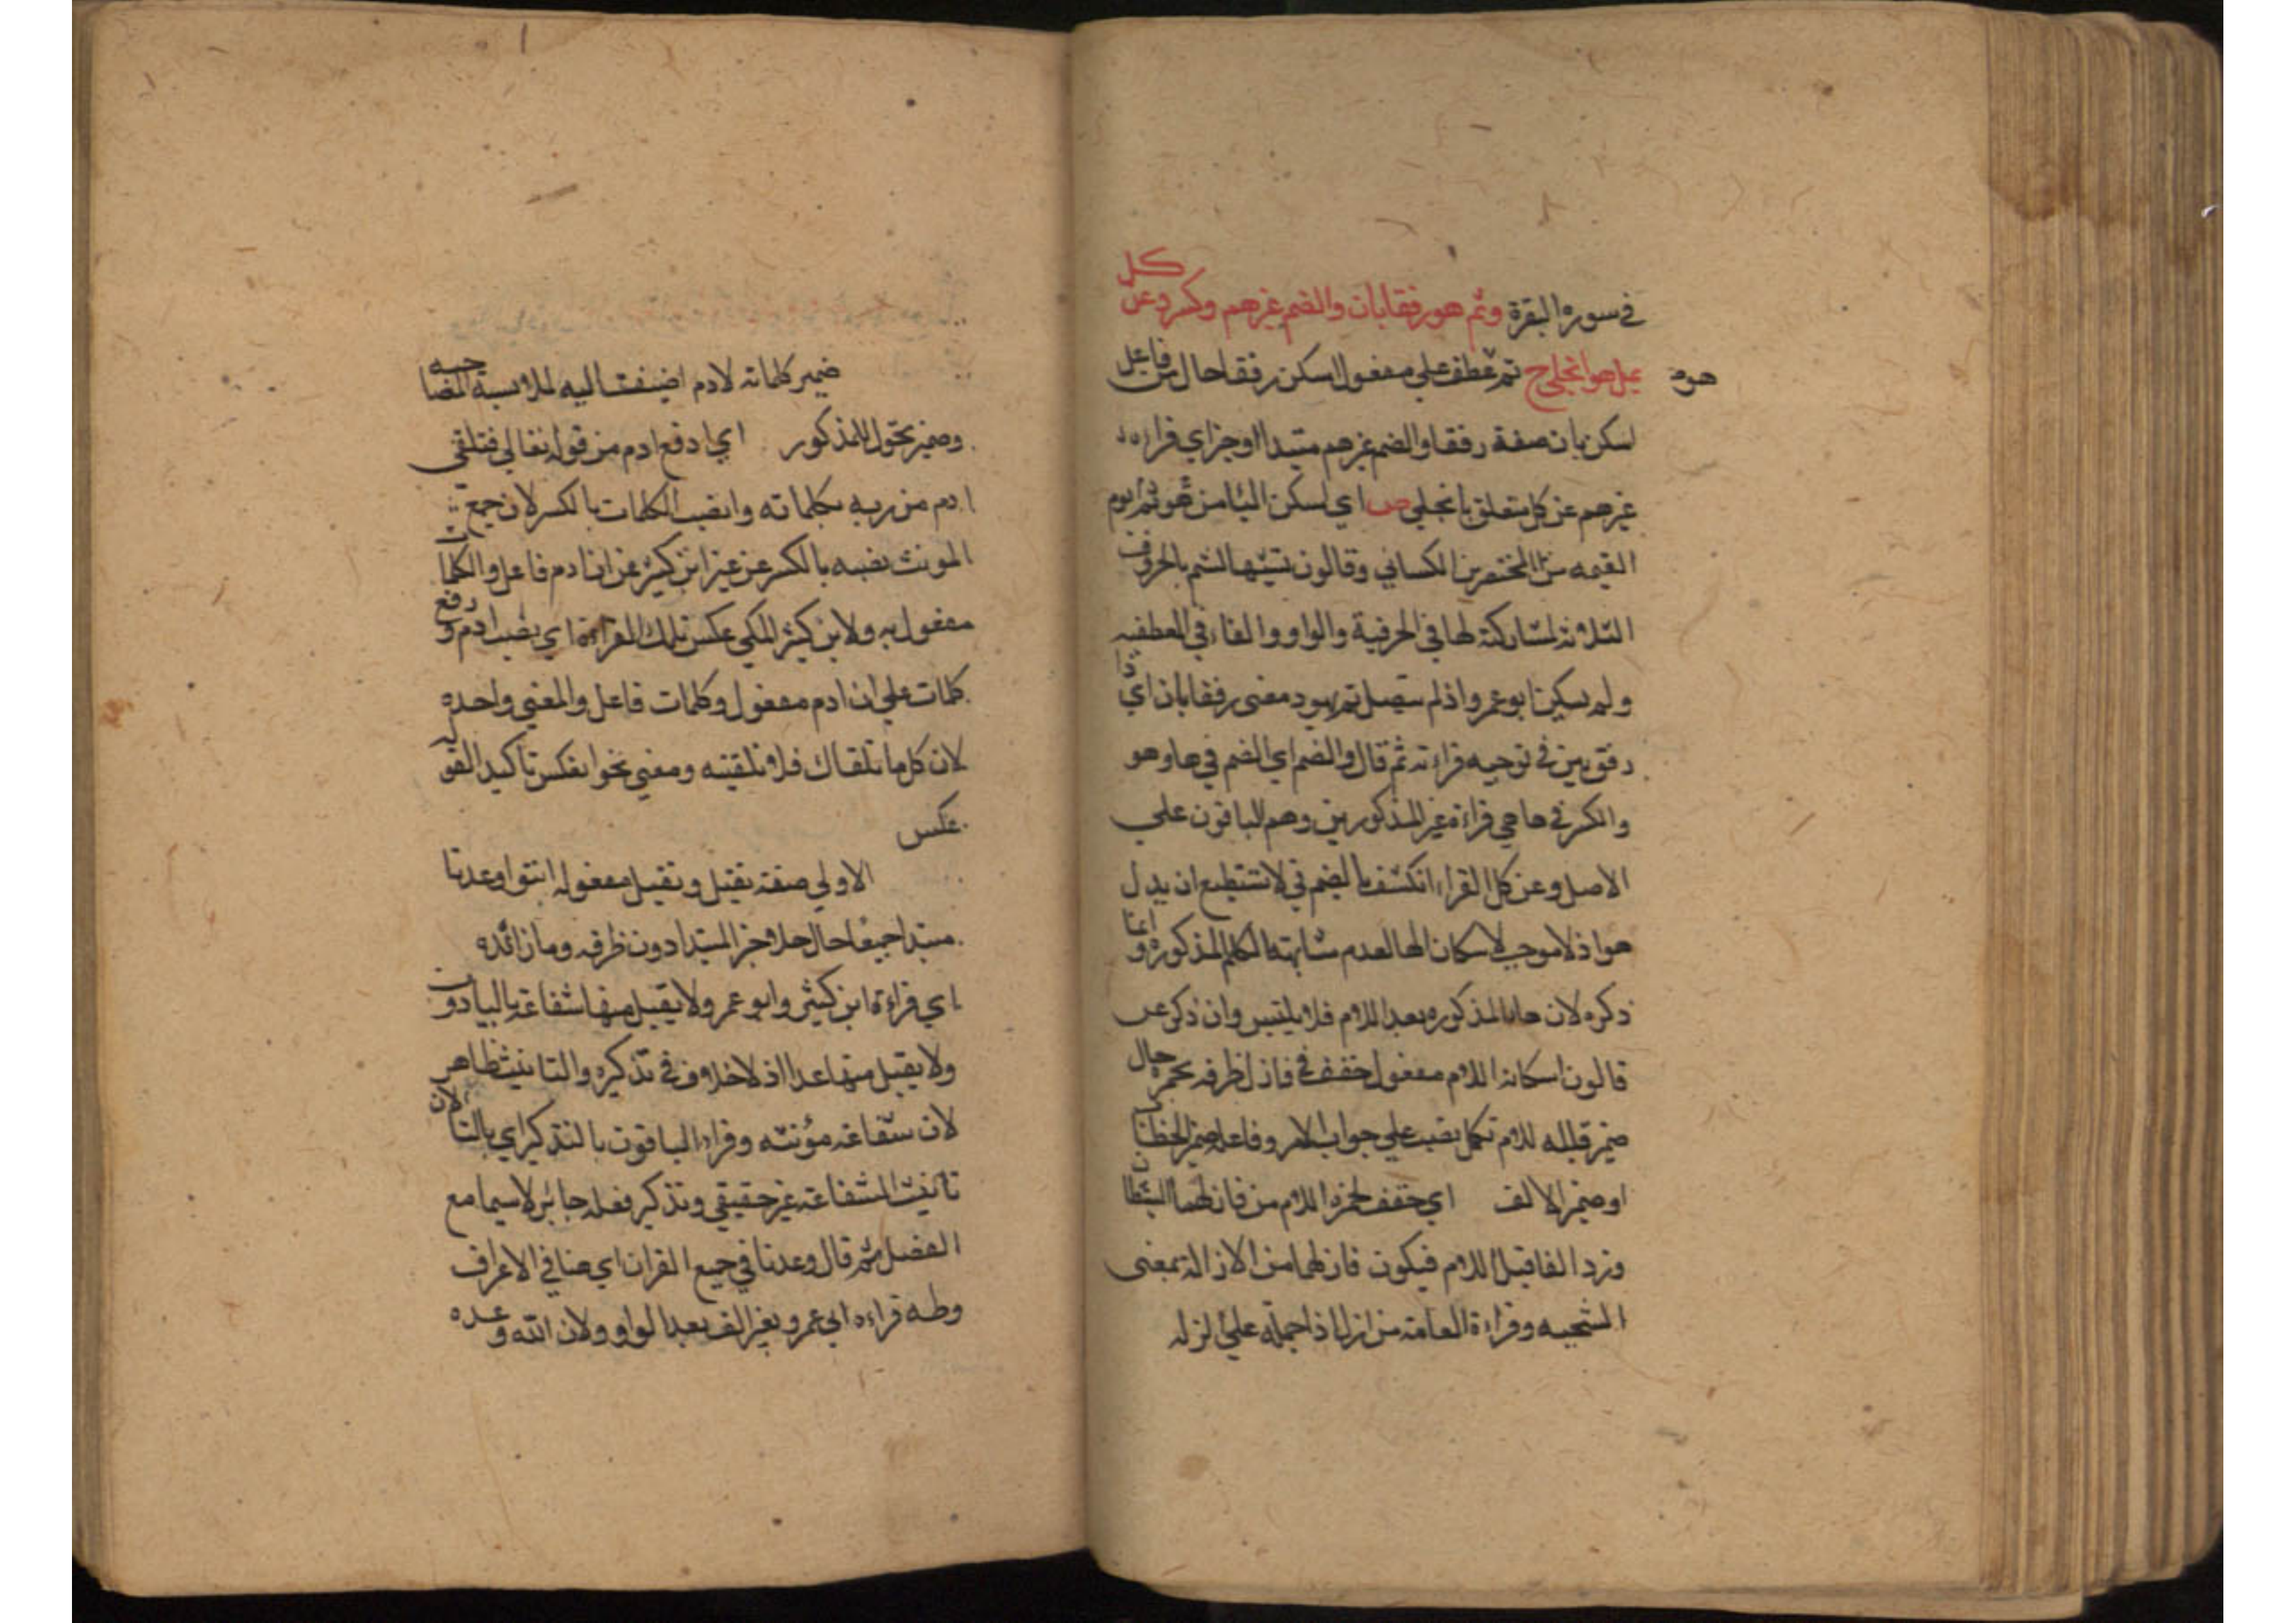 في سورة البقرة وثم هو رفقا بان والضم غيرهم وكسر وعن كل
يمل هو انجلى ح ثم عطف على مفعول اسكن رفقا حال من فاعل
هو م
اسكن بان صفة رفقا والضم غيرهم مبتدا او جزاي قراءة
غيرهم عن كل متعلق بانجلى ص اي اسكن الها من هو ثم هو يوم
القيمه من المحضرين الكسائي وقالون تشبيها لثم بالحروف
الثلاثة لمشاركته لها في الحرفية والواو والفاء في العطفيه
ولم يسكن ابو عمرو اذ لم يتصل ثم بهو ومعنى رفقا بان اي ذا
رفق بين في توجيه قراءته ثم قال والضم اي الضم في ها وهو
والكسر في ها هي قراءة غير المذكورين وهم الباقون على
الاصل وعن كل القراء انكشف بالضم في لا يستطيع ان يمل
هو اذ لا موجب لاسكان الها لعدم مشابهته الكلم المذكوره وانما
ذكره لان ها المذكوره بعد اللام فلا يلتبس وان ذكر عن
قالون اسكانه اللام مفعول خفف في فازل ظرفه بحمزه حال
ضمير قبله للام تكملا نصب على جواب الامر وفاعله ضمير الخطاب
او ضمير الالف اي خفف لحمزه اللام من فازلهما الشيطان
وزد الفا قبل اللام فيكون فازلهما من الازالة بمعنى
التنحيه وقراءة العامة من ازل اذا حمله على الزله
ضمير كلماته لادم اضيفت اليه لملابسة المضا حبه
وضمير تحول للمذكور اي ارفع ادم من قوله تعالى فتلقى
ادم من ربه بكلماته وانصب الكلمات بالكسر لان جمع
المونث نصبه بالكسر عن غير ابن كثير عن ان ادم فاعل والكلمات
مفعول به ولابن كثير المكي عكس تلك القراءة اي نصب ادم ورفع
كلمات على ان ادم مفعول وكلمات فاعل والمعنى واحده
لان كل ما تلقاك فلا تلقيته ومعنى تحوا بعكس تاكيد القو له
عكس
الاولى صفة يقبل وتقبل مفعوله انثوا وعدنا
مبتدا جميعا حال حلا جز المبتدا دون ظرفه وما زائده
اي قراءة ابن كثير وابو عمرو ولا يقبل منها شفاعة بالياء دون
ولا يقبل منها عدل اذ لا خلاف في تذكيره والتانيث ظاهر
لان شفاعة مؤنثه وقراءة الباقون بالتذكير اي بالتا لان
تانيث الشفاعة غير حقيقي وتذكير فعله جائز لا سيما مع
الفصل ثم قال وعدنا في جميع القران اي هنا في الاعراف
وطه قراءه ابي عمرو بغير الف بعد الواو ولان الله وعده